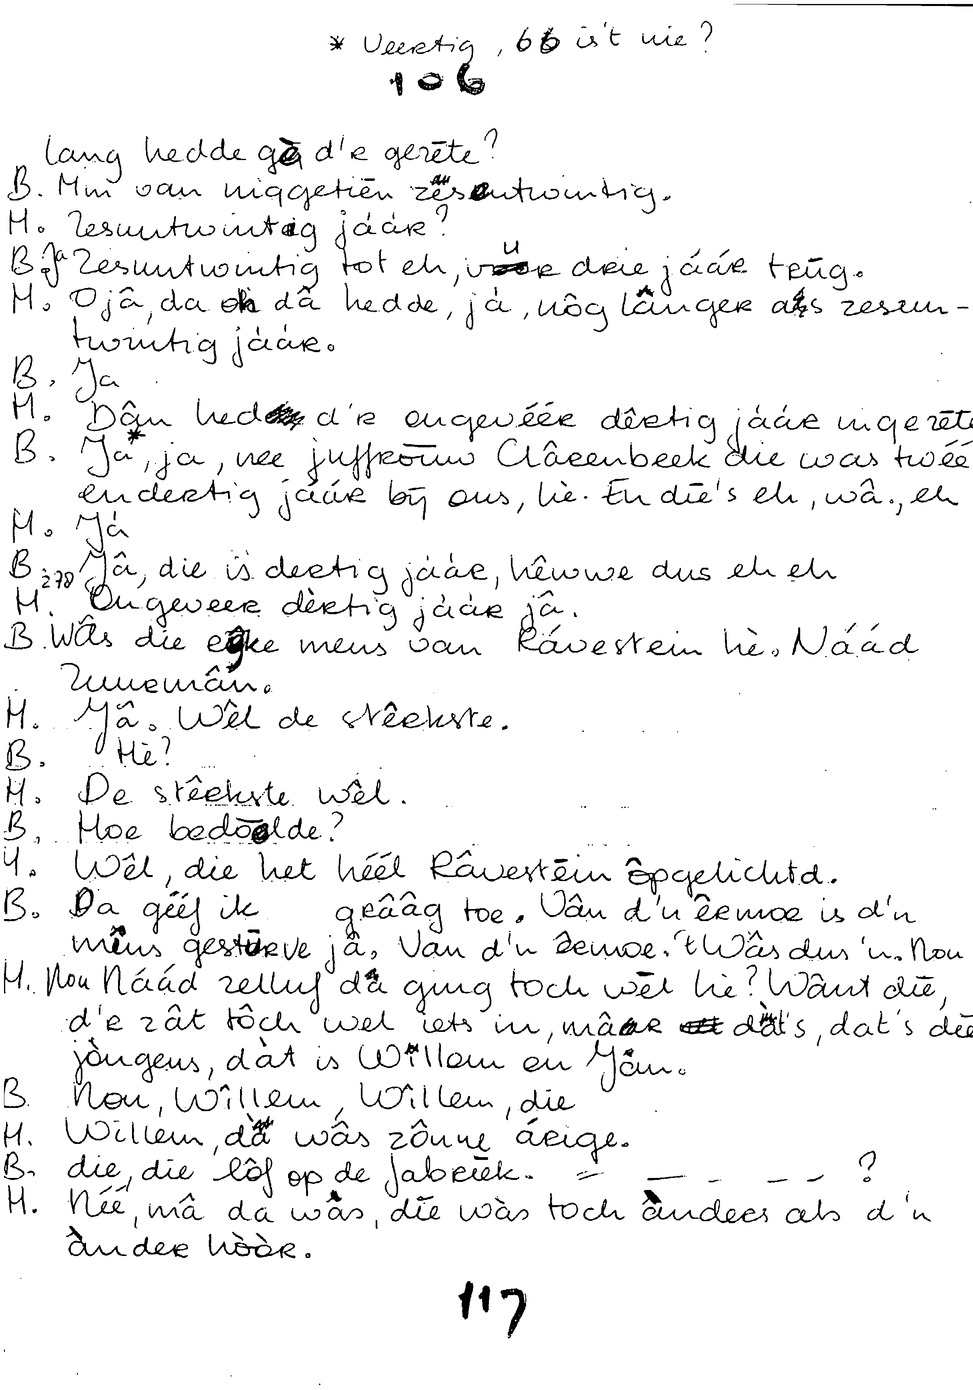 * Veertig, 66 is't nie?
106
lang hedde gè d'r gerēte?
B. Mm van niggetiēn zēsentwintig.
H. Zesuntwintig jáár?
B. Ja Zesuntwintig tot eh, vur drie jáár trūg.
H. Ojâ, da dâ hedde, já, nôg lânger as zesun-
twintig jáár.
B. Ja
H. Dân hed d'r ongevéér dêrtig jáár ingerēte
B. Ja*, ja, nee juffrōuw Clârenbeek die was twéé
endertig jáár bij ons, hè. En dīe's eh, wâ., eh
H. Já
B. Jâ, die is dertig jáár, hêwwe dus eh eh
278
H. Ongeveer dèrtig jáár jâ.
B. Wâs die eģke mens van Rávestein hè. Náád
Zuuremân.
H. Jâ. Wêl de stêrkste.
B. Hè?
H. De stêrkste wêl.
B. Hoe bedōelde?
H. Wêl, die het héél Râvestēin ôpgelichtd.
B. Da gééf ik grââg toe. Vân d'n êrmoe is d'n
mêns gestūrve jâ. Van d'n êrmoe. 't Wâs dus 'n. Nou
H. Nou Náád zelluf dâ ging toch wēl hè? Wânt dīe,
d'r zât tôch wel iets in, mâar dàt's, dat's dīe
jòngens, dàt is Willem en Jân.
B Nou, Wîllem, Wîllem, die
H. Willem, dâ wâs zônne árige.
B. die, die lôf op de fabrīek. = — - - - ?
H. Néé, mâ da wàs, dīe wàs toch ànders als d'n
ànder hòòr.
117